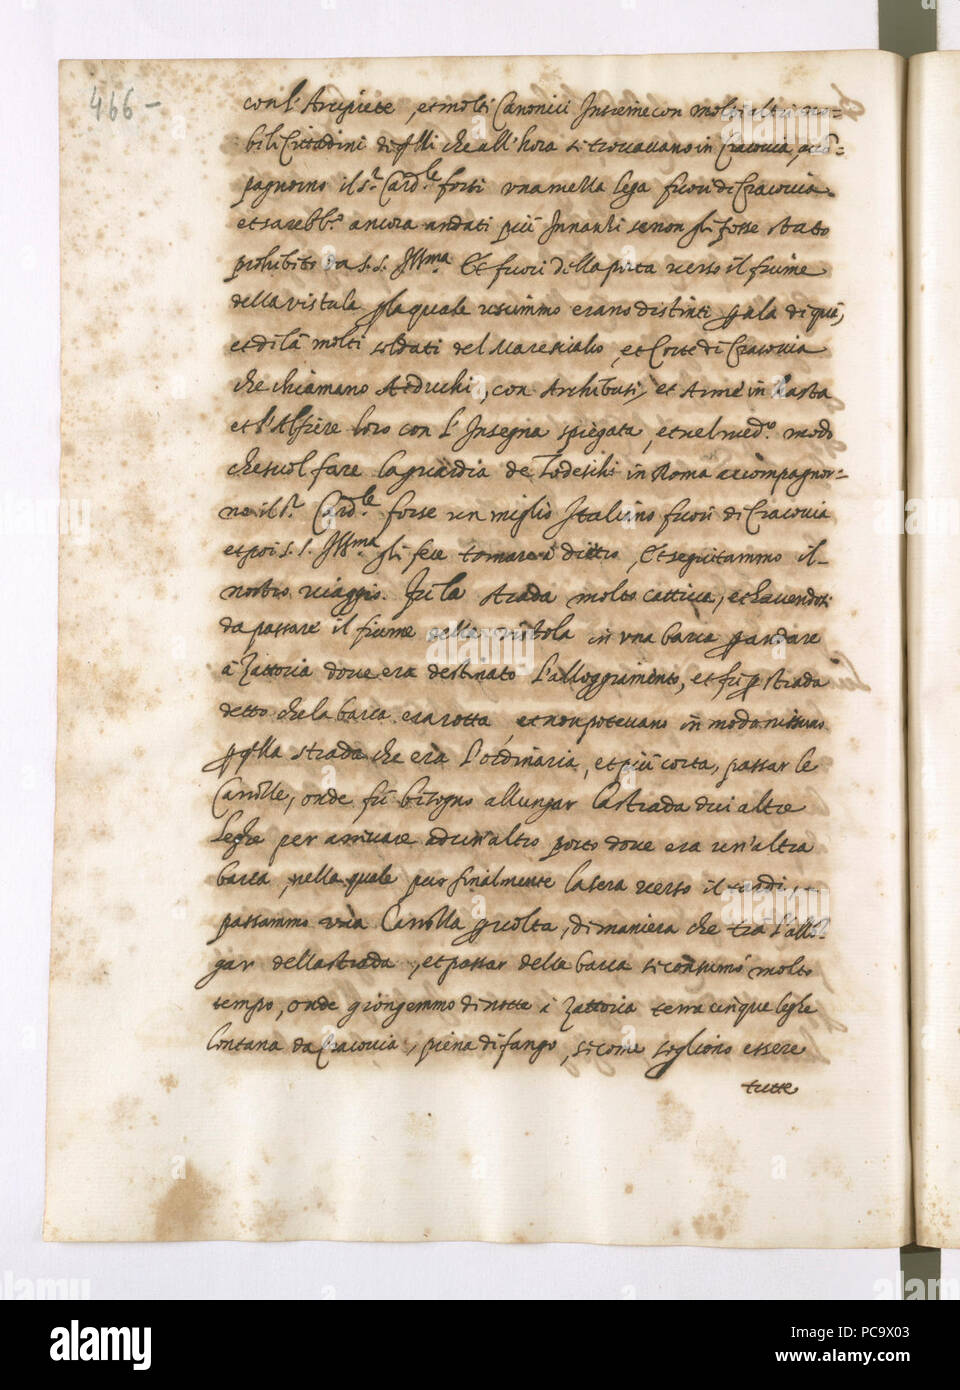 466-
con l'Arciprete, et molti Canonici Insieme con molti altri no-
bili Cittadini di qlli che all'hora si trovavano in Cracovia, acco=
pagnorno il s.r Card.le forsi una mezza lega fuori di Cracovia
et sarebb.o ancora andati più Innanzi se non gli fosse stato
prohibito da S.S. Ill.ma Et fuori della porta verso il fiume
della vistula p la quale uscimmo erano distinti p ala di quà,
et di là molti soldati del Marescialo, et Corte di Cracovia
che chiamano Aiduchi, con Archibusi, et Arme in hasta
et l'Alfiere loro con l'Insegna spiegata, et nel med.o modo
che suol fare la guardia de Todeschi in Roma accompagnor=
no il s.r Card.le forse un miglio Italiano fuori di Cracovia
et poi S.S. Ill.ma gli fece tornare i dietro, Et seguitammo il
nostro viaggio. Fu la strada molto cattiva, et havendosi
da passare il fiume della vistola in una barca p andare
à Zattoria dove era destinato l'alloggiamento, et fu p strada
detto che la barca era rotta et non potevano in modo nissuno
p qlla strada che era l'ordinaria, et più corta, passar le
Carrozze, onde fu bisogno allungar la strada dui altre
leghe per arrivare ad un'altro porto dove era un'altra
barca, nella quale pur finalmente la sera verso il tardi
passammo una Carrozza p volta, di maniera che trà l'allŏ-
gar della strada, et passar della barca si consumò molto
tempo, onde giongemmo di notte à Zattoria terra cinque leghe
lontana da Cracovia, piena di fango, sicome sogliono essere
tutte
alamy
PC9X03
www.alamy.com